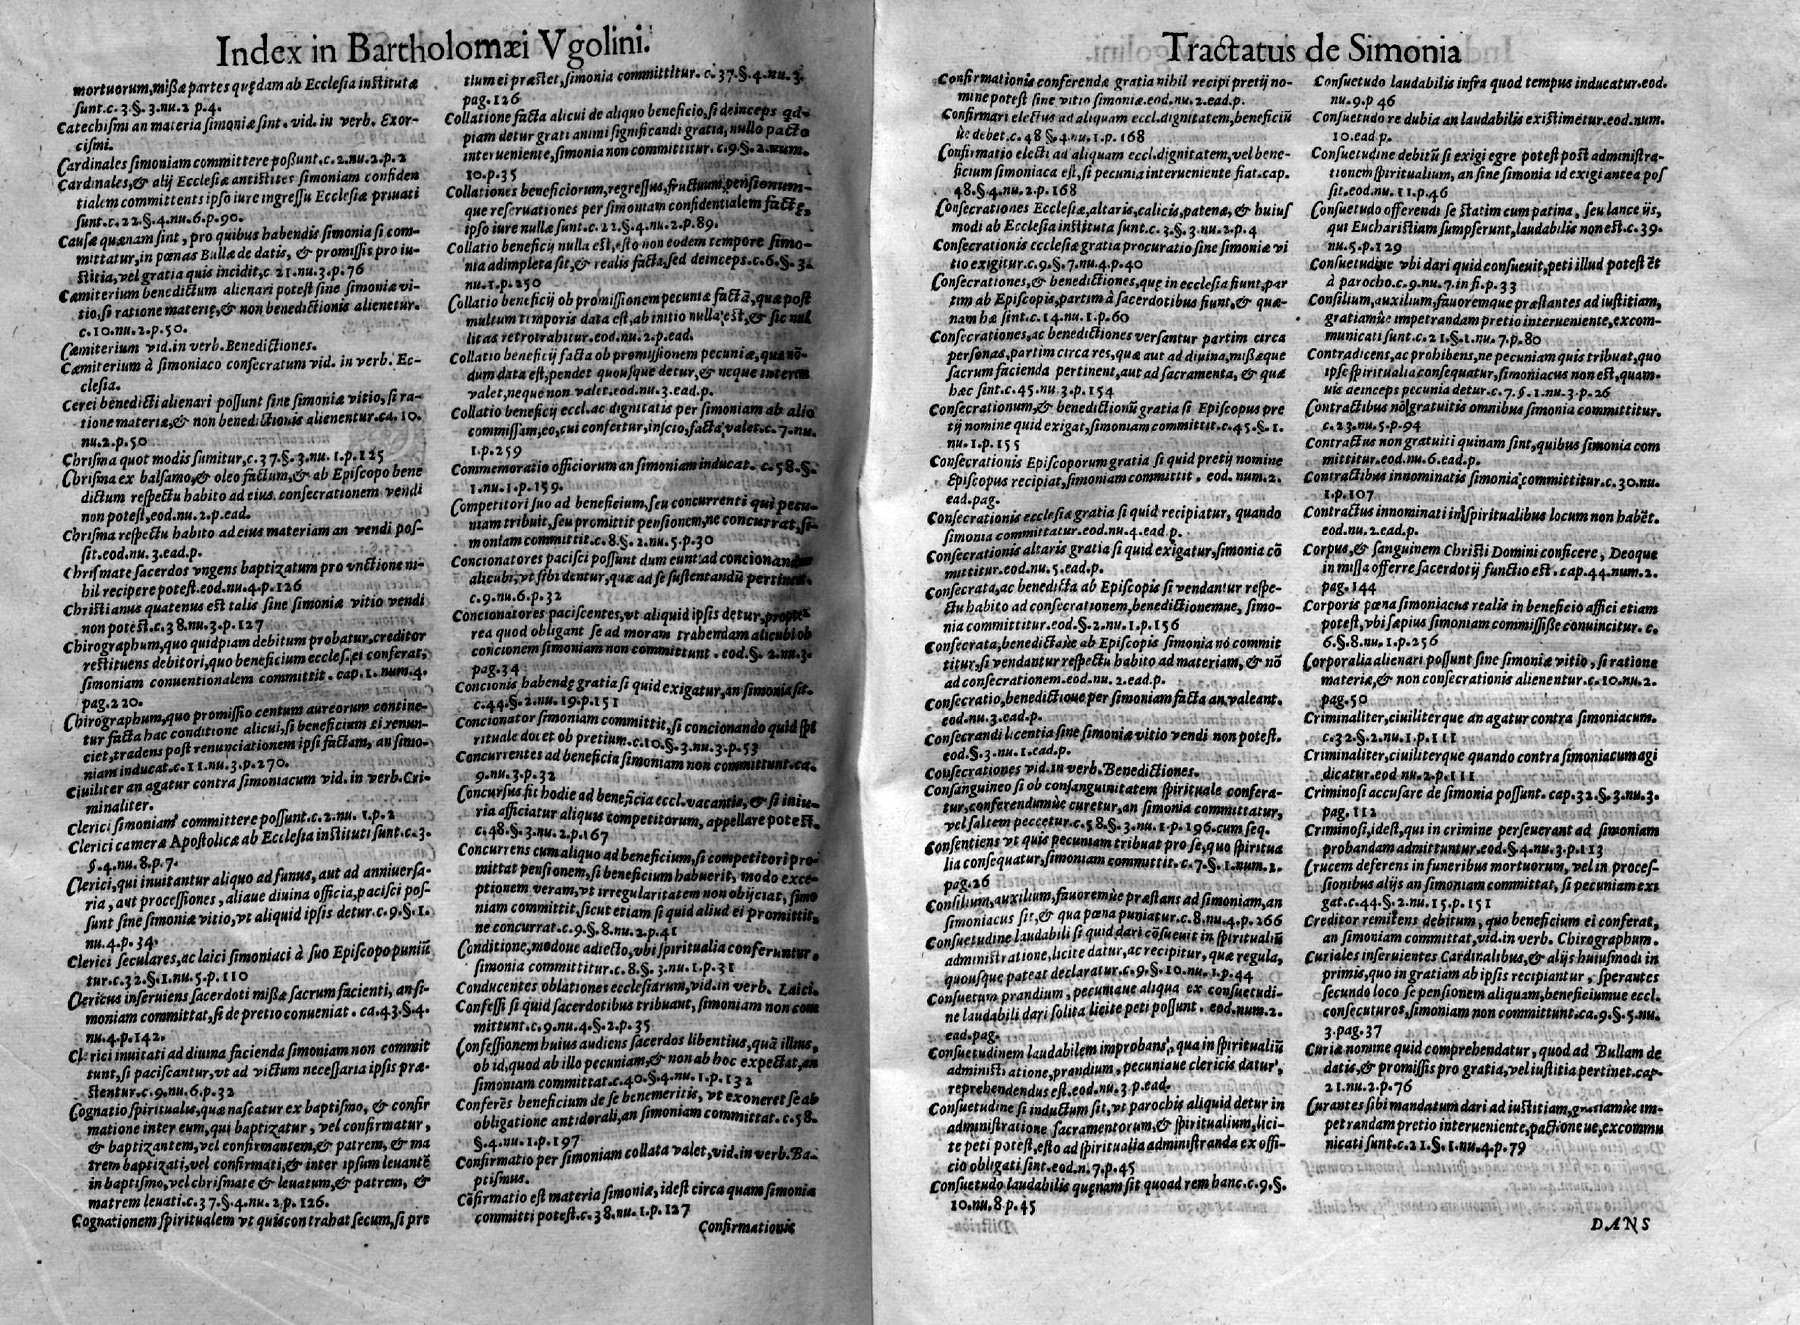 Index in Bartholomæi Vgolini.
mortuorum, missæ partes quędam ab Ecclesia institutæ
sunt. c. 3. §. 3. nu. 2 p. 4.
Catechismi an materia simoniæ sint. vid. in verb. Exor-
cismi.
Cardinales simoniam committere possunt. c. 2. nu. 2. p. 2
Cardinales, & alij Ecclesiæ antistites simoniam confiden
tialem committents ipso iure ingressu Ecclesiæ priuati
sunt. c. 22. §. 4. nu. 6. p. 90.
Causæ quænam sint, pro quibus habendis simonia si com-
mittatur, in pœnas Bullæ de datis, & promissis pro iu-
stitia, vel gratia quis incidit, c 21. nu. 3. p. 76
Cæmiterium benedictum alienari potest sine simoniæ vi-
tio, si ratione materię, & non benedictionis alienetur.
c. 10. nu. 2. p. 50.
Cæmiterium vid. in verb. Benedictiones.
Cæmiterium à simoniaco consecratum vid. in verb. Ec-
clesia.
Cerei benedicti alienari possunt sine simoniæ vitio, si ra-
tione materiæ, & non benedictionis alienentur. ca. 10.
nu. 2. p. 50
Chrisma quot modis sumitur, c. 37. §. 3. nu. 1. p. 125
Chrisma ex balsamo, & oleo factum, & ab Episcopo bene
dictum respectu habito ad eius consecrationem vendi
non potest, eod. nu. 2. p. ead.
Chrisma respectu habito ad eius materiam an vendi pos-
sit. eod. nu. 3. ead. p.
Chrismate sacerdos vngens baptizatum pro vnctione ni-
hil recipere potest. eod. nu. 4. p. 126
Christianus quatenus est talis sine simoniæ vitio vendi
non potest. c. 38. nu. 3. p. 127
Chirographum, quo quidpiam debitum probatur, creditor
restituens debitori, quo beneficium eccles. ei conferat,
simoniam conuentionalem committit. cap. 1. num. 4.
pag. 220.
Chirographum, quo promissio centum aureorum contine-
tur facta hac conditione alicui, si beneficium ei renun-
ciet, tradens post renunciationem ipsi factam, an simo-
niam inducat. c. 11. nu. 3. p. 270.
Ciuiliter an agatur contra simoniacum vid. in verb. Cri-
minaliter.
Clerici simoniam committere possunt. c. 2. nu. 1. p. 2
Clerici cameræ Apostolicæ ab Ecclesia instituti sunt. c. 3.
§. 4. nu. 8. p. 7.
Clerici, qui inuitantur aliquo ad funus, aut ad anniuersa-
ria, aut processiones, aliaue diuina officia, pacisci pos-
sunt sine simoniæ vitio, vt aliquid ipsis detur. c. 9. §. 1.
nu. 4. p. 34.
Clerici seculares, ac laici simoniaci à suo Episcopo puniũ
tur. c. 32. §. 1. nu. 5. p. 110
Clericus inseruiens sacerdoti missæ sacrum facienti, an si-
moniam committat, si de pretio conueniat. ca. 43. §. 4.
nu. 4. p. 142.
Clerici inuitati ad diuina facienda simoniam non commit
tunt, si paciscantur, vt ad victum necessaria ipsis præ-
stentur. c. 9. nu. 6. p. 32
Cognatio spiritualis, quæ nascatur ex baptismo, & confir
matione inter eum, qui baptizatur, vel confirmatur,
& baptizantem, vel confirmantem, & patrem, & ma
trem baptizati, vel confirmati, & inter ipsum leuantẽ
in baptismo, vel chrismate & leuatum, & patrem, &
matrem leuati. c. 37. §. 4. nu. 2. p. 126.
Cognationem spiritualem vt quis contrahat secum, si pre
tium ei præstet, simonia committitur. c. 37. §. 4. nu. 3.
pag. 126
Collatione facta alicui de aliquo beneficio, si deinceps qd-
piam detur grati animi significandi gratia, nullo pacto
interueniente, simonia non committitur. c. 9. §. 2. num.
10. p. 35
Collationes beneficiorum, regressus, fructuum, pensionum-
que reseruationes per simoniam confidentialem factę,
ipso iure nullæ sunt. c. 22. §. 4. nu. 2. p. 89.
Collatio beneficij nulla est, esto non eodem tempore simo-
nia adimpleta sit, & realis facta, sed deinceps. c. 6. §. 3.
nu. 1. p. 250
Collatio beneficij ob promissionem pecuniæ factã, quæ post
multum temporis data est, ab initio nulla est, & sic nul
litas retrotrahitur. eod. nu. 2. p. ead.
Collatio beneficij facta ob promissionem pecuniæ, quæ nõ-
dum data est, pendet quousque detur, & neque interim
valet, neque non valet. eod. nu. 3. ead. p.
Collatio beneficij eccl. ac dignitatis per simoniam ab alio
commissam, eo, cui confertur, inscio, facta, valet. c. 7. nu.
1. p. 259
Commemoratio officiorum an simoniam inducat. c. 58. §.
1. nu. 1. p. 159.
Competitori suo ad beneficium, seu concurrenti qui pecu-
niam tribuit, seu promittit pensionem, ne concurrat, si-
moniam committit. c. 8. §. 2. nu. 5. p. 30
Concionatores pacisci possunt dum eunt ad concionandum
alicubi, vt sibi dentur, quæ ad se sustentandũ pertinent.
c. 9. nu. 6. p. 32
Concionatores paciscentes, vt aliquid ipsis detur, propte
rea quod obligant se ad moram trahendam alicubi ob
concionem simoniam non committunt. eod. §. 2. nu. 3.
pag. 34
Concionis habendę gratia si quid exigatur, an simonia sit.
c. 44. §. 2. nu. 19. p. 151
Concionator simoniam committit, si concionando quid spi
rituale docet ob pretium. c. 10. §. 3. nu. 3. p. 53
Concurrentes ad beneficia simoniam non committunt. ca.
9. nu. 3. p. 32
Concursus fit hodie ad beneficia eccl. vacantia, & si iniu-
ria afficiatur aliquis competitorum, appellare potest.
c. 48. §. 3. nu. 2. p. 167
Concurrens cum aliquo ad beneficium, si competitori pro-
mittat pensionem, si beneficium habuerit, modo exce-
ptionem veram, vt irregularitatem non obijciat, simo
niam committit, sicut etiam si quid aliud ei promittit,
ne concurrat. c. 9. §. 8. nu. 2. p. 41
Conditione, modoue adiecto, vbi spiritualia conferuntur,
simonia committitur. c. 8. §. 3. nu. 1. p. 31
Conducentes oblationes ecclesiarum, vid. in verb. Laici.
Confessi si quid sacerdotibus tribuant, simoniam non com
mittunt. c. 9. nu. 4. §. 2. p. 35
Confessionem huius audiens sacerdos libentius, quã illius,
ob id, quod ab illo pecuniam, & non ab hoc expectat, an
simoniam committat. c. 40. §. 4. nu. 1. p. 132
Conferẽs beneficium de se benemeritis, vt exoneret se ab
obligatione antidorali, an simoniam committat. c. 58.
§. 4. nu. 1. p. 197
Confirmatio per simoniam collata valet, vid. in verb. Ba-
ptismus.
Cõfirmatio est materia simoniæ, idest circa quam simonia
committi potest. c. 38. nu. 1. p. 127
Confirmationis
Tractatus de Simonia
Confirmationis conferendæ gratia nihil recipi pretij no-
mine potest sine vitio simoniæ. eod. nu. 2. ead. p.
Confirmari electus ad aliquam eccl. dignitatem, beneficiũ
ùe debet. c. 48 §. 4. nu. 1. p. 168
Confirmatio electi ad aliquam eccl. dignitatem, vel bene-
ficium simoniaca est, si pecunia interueniente fiat. cap.
48. §. 4. nu. 2. p. 168
Consecrationes Ecclesiæ, altaris, calicis, patenæ, & huius
modi ab Ecclesia instituta sunt. c. 3. §. 3. nu. 2. p. 4
Consecrationis ecclesiæ gratia procuratio sine simoniæ vi
tio exigitur. c. 9. §. 7. nu. 4. p. 40
Consecrationes, & benedictiones, quę in ecclesia fiunt, par
tim ab Episcopis, partim à sacerdotibus fiunt, & quæ-
nam hæ sint. c. 14. nu. 1. p. 60
Consecrationes, ac benedictiones versantur partim circa
personas, partim circa res, quæ aut ad diuina, missæque
sacrum facienda pertinent, aut ad sacramenta, & quæ
hæc sint. c. 45. nu. 3. p. 154
Consecrationum, & benedictionũ gratia si Episcopus pre
tij nomine quid exigat, simoniam committit. c. 45. §. 1.
nu. 1. p. 155
Consecrationis Episcoporum gratia si quid pretij nomine
Episcopus recipiat, simoniam committit. eod. nu. 2.
ead. pag.
Consecrationis ecclesiæ gratia si quid recipiatur, quando
simonia committatur. eod. nu. 4. ead. p.
Consecrationis altaris gratia si quid exigatur, simonia cõ
mittitur. eod. nu. 5. ead. p.
Consecrata, ac benedicta ab Episcopis si vendantur respe-
ctu habito ad consecrationem, benedictionemue, simo-
nia committitur. eod. §. 2. nu. 1. p. 156
Consecrata, benedictaùe ab Episcopis simonia nõ commit
titur, si vendantur respectu habito ad materiam, & nõ
ad consecrationem. eod. nu. 2. ead. p.
Consecratio, benedictioue per simoniam facta an valeant.
eod. nu. 3. ead. p.
Consecrandi licentia sine simoniæ vitio vendi non potest.
eod. §. 3. nu. 1. ead. p.
Consecrationes vid. in verb. Benedictiones.
Consanguineo si ob consanguinitatem spirituale confera-
tur, conferendumùe curetur, an simonia committatur,
vel saltem peccetur. c. 58. §. 3. nu. 1. p. 196. cum seq.
Consentiens vt quis pecuniam tribuat pro se, quo spiritua
lia consequatur, simoniam committit. c. 7. §. 1. num. 2.
pag. 26
Consilium, auxilium, fauoremùe præstans ad simoniam, an
simoniacus sit, & qua pœna puniatur. c. 8. nu. 4. p. 266
Consuetudine laudabili si quid dari cõsueuit in spiritualiũ
administratione, licite datur, ac recipitur, quæ regula,
quousque pateat declaratur. c. 9. §. 10. nu. 1. p. 44
Consuetum prandium, pecuniaue aliqua ex consuetudi-
ne laudabili dari solita licite peti possunt. eod. num. 2.
ead. pag.
Consuetudinem laudabilem improbans, qua in spiritualiũ
administratione, prandium, pecuniaue clericis datur,
reprehendendus est. eod. nu. 3. p. ead.
Consuetudine si inductum sit, vt parochis aliquid detur in
administratione sacramentorum, & spiritualium, lici-
te peti potest, esto ad spiritualia administranda ex offi-
cio obligati sint. eod. n. 7. p. 45
Consuetudo laudabilis quęnam sit quoad rem hanc. c. 9. §.
10. nu. 8. p. 45
Consuetudo laudabilis infra quod tempus inducatur. eod.
nu. 9. p 46
Consuetudo re dubia an laudabilis existimetur. eod. num.
10. ead p.
Consuetudine debitũ si exigi egre potest post administra-
tionem spiritualium, an sine simonia id exigi antea pos
sit. eod. nu. 11. p. 46
Consuetudo offerendi se statim cum patina, seu lance ijs,
qui Eucharistiam sumpserunt, laudabilis non est. c. 39.
nu. 5. p. 129
Consuetudine vbi dari quid consueuit, peti illud potest ẽt
à parocho. c. 9. nu. 7. in fi. p. 33
Consilium, auxilium, fauoremque præstantes ad iustitiam,
gratiamùe impetrandam pretio interueniente, excom-
municati sunt. c. 21. §. 1. nu. 7. p. 80
Contradicens, ac prohibens, ne pecuniam quis tribuat, quo
ipse spiritualia consequatur, simoniacus non est, quam-
uis deinceps pecunia detur. c. 7. §. 1. nu. 3. p. 26
Contractibus nõ gratuitis omnibus simonia committitur.
c. 23. nu. 5. p. 94
Contractus non gratuiti quinam sint, quibus simonia com
mittitur. eod. nu. 6. ead. p.
Contractibus innominatis simonia committitur. c. 30. nu.
1. p. 107
Contractus innominati in spiritualibus locum non habẽt.
eod. nu. 2. ead. p.
Corpus, & sanguinem Christi Domini conficere, Deoque
in missa offerre sacerdotij functio est. cap. 44. num. 2.
pag. 144
Corporis pœna simoniacus realis in beneficio affici etiam
potest, vbi sæpius simoniam commisisse conuincitur. c.
6. §. 8. nu. 1. p. 256
Corporalia alienari possunt sine simoniæ vitio, si ratione
materiæ, & non consecrationis alienentur. c. 10. nu. 2.
pag. 50
Criminaliter, ciuiliterque an agatur contra simoniacum.
c. 32. §. 2. nu. 1. p. 111
Criminaliter, ciuiliterque quando contra simoniacum agi
dicatur. eod nu. 2. p. 111
Criminosi accusare de simonia possunt. cap. 32. §. 3. nu. 3.
pag. 112
Criminosi, idest, qui in crimine perseuerant ad simoniam
probandam admittuntur. eod. §. 4. nu. 3. p. 113
Crucem deferens in funeribus mortuorum, vel in proces-
sionibus alijs an simoniam committat, si pecuniam exi
gat. c. 44. §. 2. nu. 15. p. 151
Creditor remittens debitum, quo beneficium ei conferat,
an simoniam committat, vid. in verb. Chirographum.
Curiales inseruientes Cardinalibus, & alijs huiusmodi in
primis, quo in gratiam ab ipsis recipiantur, sperantes
secundo loco se pensionem aliquam, beneficiumue eccl.
consecuturos, simoniam non committunt. ca. 9. §. 5. nu.
3. pag. 37
Curiæ nomine quid comprehendatur, quod ad Bullam de
datis, & promissis pro gratia, vel iustitia pertinet. cap.
21. nu. 2. p. 76
Curantes sibi mandatum dari ad iustitiam, gratiamùe im-
petrandam pretio interueniente, pactione ue, excommu
nicati sunt. c. 21. §. 1. nu. 4. p. 79
DANS